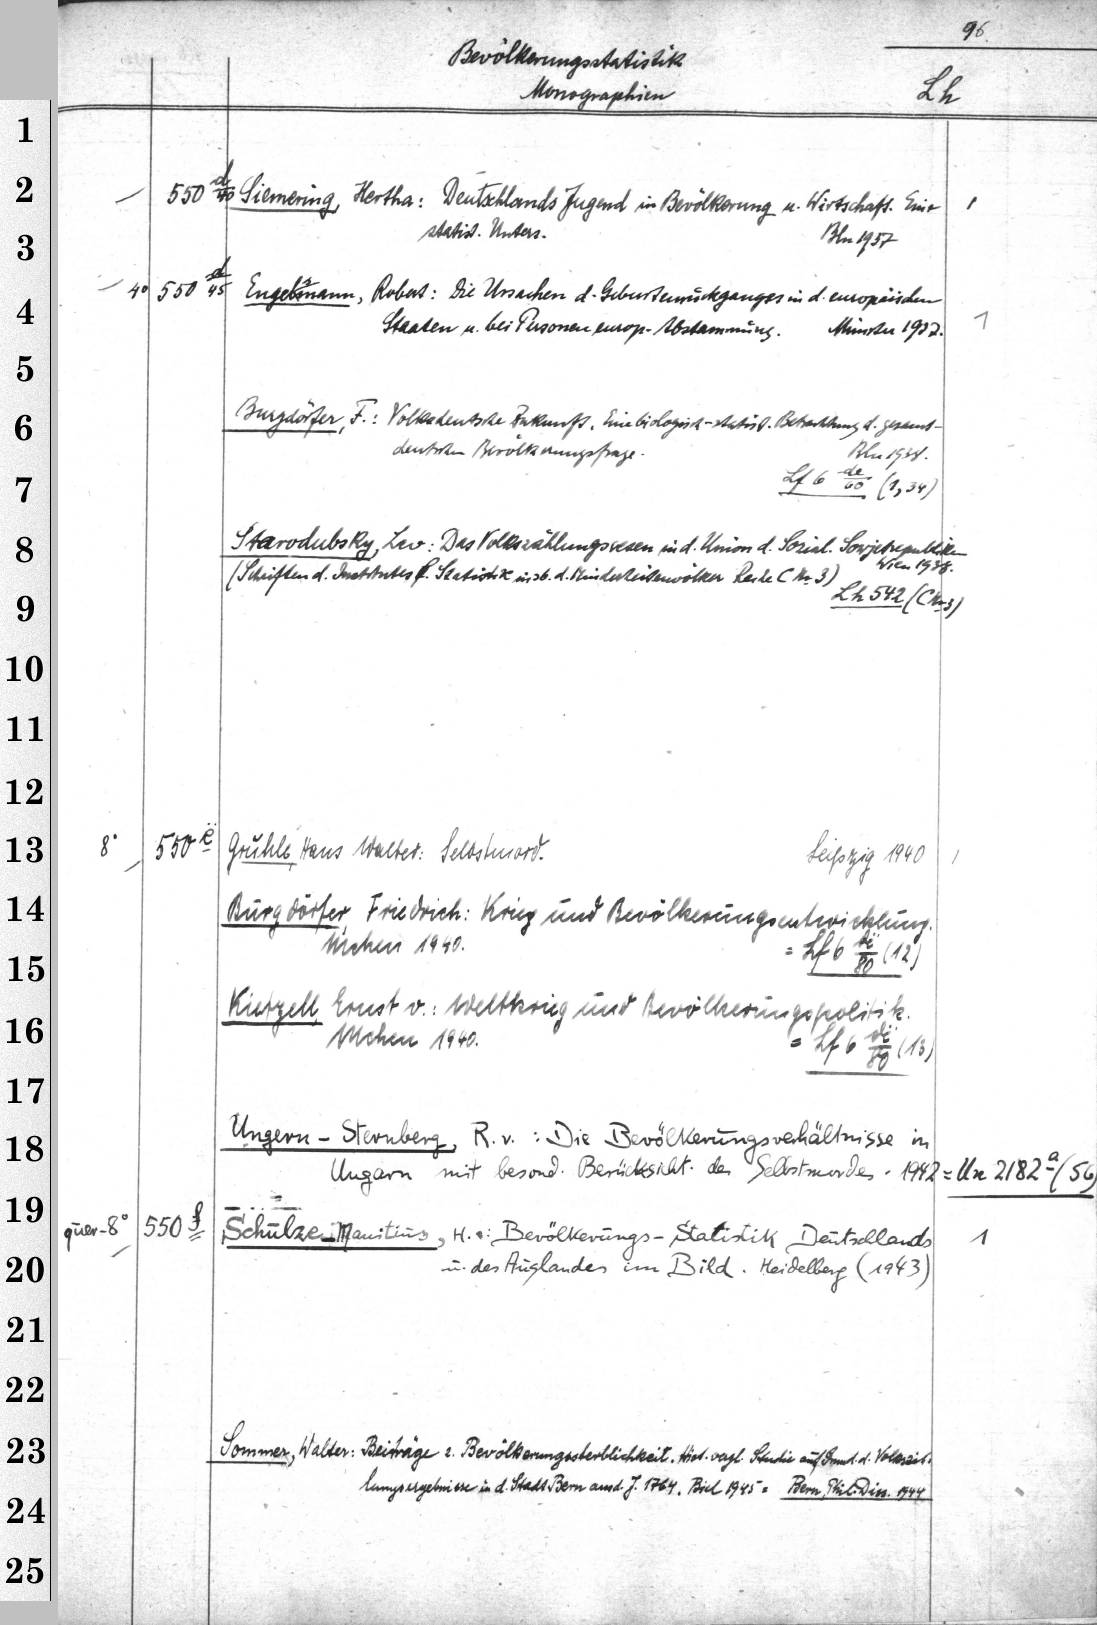 96.
Bevölkerungsstatistik
Monographien Lh
1
2 550 d/40 Siemering, Hertha: Deutschlands Jugend in Bevölkerung u. Wirtschaft. Eine 1
statist. Unters. Bln 1937
3
4° 550 d/45 Engelsmann, Robert: Die Ursachen d. Geburtenrückganges in d. europäischen
4 Staaten u. bei Personen europ. Abstammung. Münster 1937. 1
5
6 Burgdörfer, F.: Volksdeutsche Zukunft. Eine biologisch-statist. Betrachtung d. gesamt-
deutschen Bevölkerungsfrage. Bln 1938.
7 Lf 6 de/60 (1,34)
8 Starodubsky, Lew: Das Volkszählungswesen in d. Union d. Sozial. Sowjetrepubliken
Wien 1938.
(Schriften d. Institutes f. Statistik insb. d. Minderheitenvölker Reihe C Nr 3)
9 Lh 542 (C Nr 3)
10
11
12
13 8° 550 ë Gruhle, Hans Walter: Selbstmord. Leipzig 1940 1
14 Burgdörfer, Friedrich: Krieg und Bevölkerungsentwicklung.
Mchen 1940. = Lf 6 dë/80 (12)
15
Kietzell, Ernst v.: Weltkrieg und Bevölkerungspolitik.
16 Mchen 1940. = Lf 6 dë/80 (13)
17
18 Ungern-Sternberg, R. v.: Die Bevölkerungsverhältnisse in
Ungarn mit besond. Berücksicht. des Selbstmordes. 1942 = Un 2182 a (56)
19
quer-8° 550 f Schulze-Mauritius, H. : Bevölkerungs-Statistik Deutschlands 1
20 u. des Auslandes im Bild. Heidelberg (1943)
21
22
23 Sommer, Walter: Beiträge z. Bevölkerungssterblichkeit. Hist. vergl. Studie auf Grund d. Volkszäh-
lungsergebnisse in d. Stadt Bern aus d. J. 1764. Biel 1945 = Bern, Phil. Diss. 1944
24
25